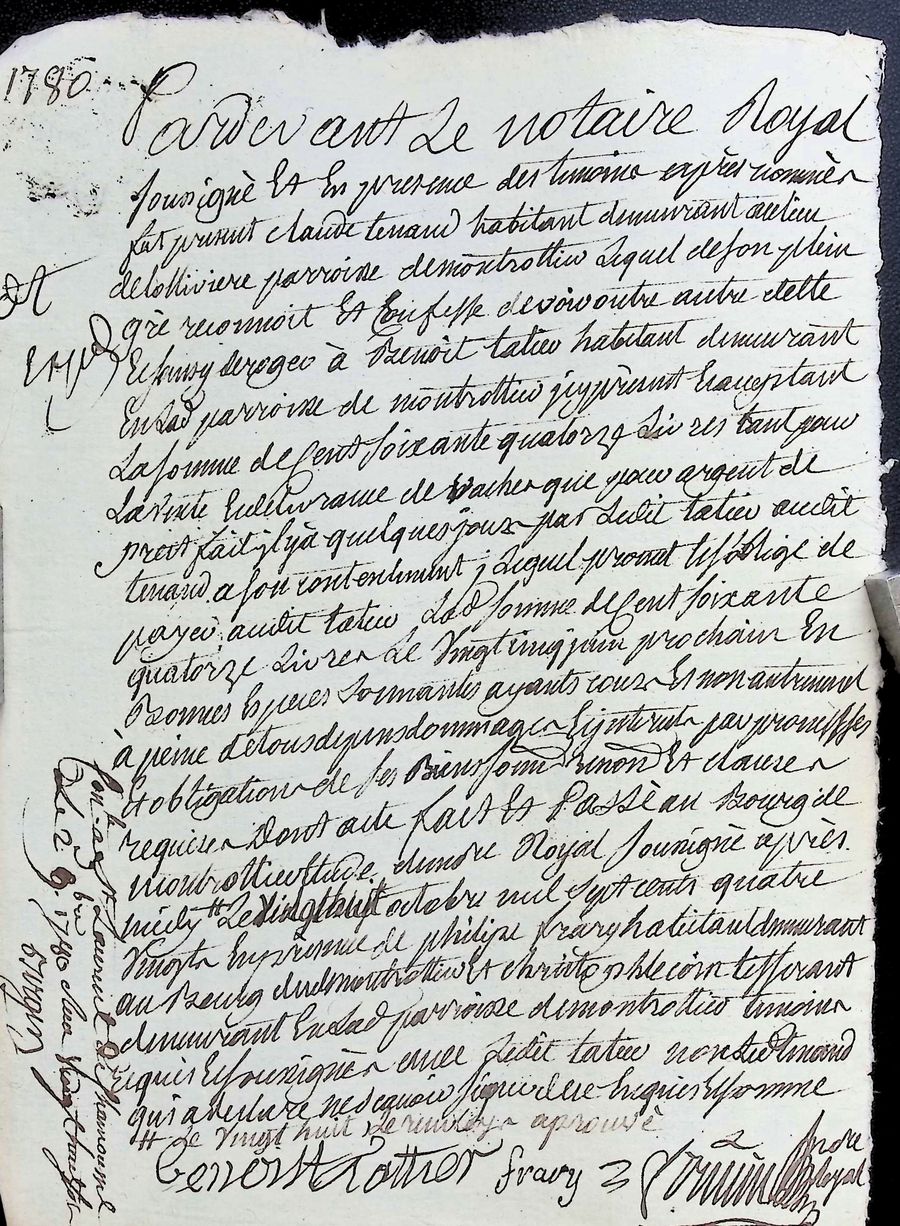 1780
Pardevant Le notaire Royal
soussigné Et En presence des temoins après nommès
fut present claude tenand habitant demeurant au lieu
de lolliviere parroisse de montrottier Lequel de son plein
gré reconnoit Et Confesse devoir outre autre dette
Et sans y deroger à Benoît tatieu habitant demeurant
En Lad parroisse de montrottier icy présent Et acceptant
La somme de Cent soixante quatorze Livres tant pour
La vente Et delivrance de vaches que pour argent de
pret fait il y à quelques jours par Ledit tatieu audit
tenand a son contentement ; Lequel promet Et s'oblige de
payer audit tatieu Lad somme de Cent soixante
quatorze Livres Le Vingt cinq juin prochain En
Bonnes Especes sonnantes ayants cours Et non autrement
à peine de tous depens dommages Et interets par promesses
Et obligations de ses Biens soum renond Et clauses
requises Dont acte fait Et Passé au Bourg de
montrottier Etude du nore Royal soussigné après
midy Le Vingt huit octobre mil sept cents quatre
Vingts En presence de philipe frary habitant demeurant
au Bourg dud montrottier Et christophle tisserant
demeurant En Lad parroisse de montrottier temoins
requis Et soussignès avec Ledit tatieu non Led tenand
qui a declaré ne sçavoir signer de ce Enquis Et sommé
Le Vingt huit aprouvé
Benoist tattier frary
nore Royal
Con. a St Laurent De Chamousset
Le 2 9bre 1780 Vingt huit sols